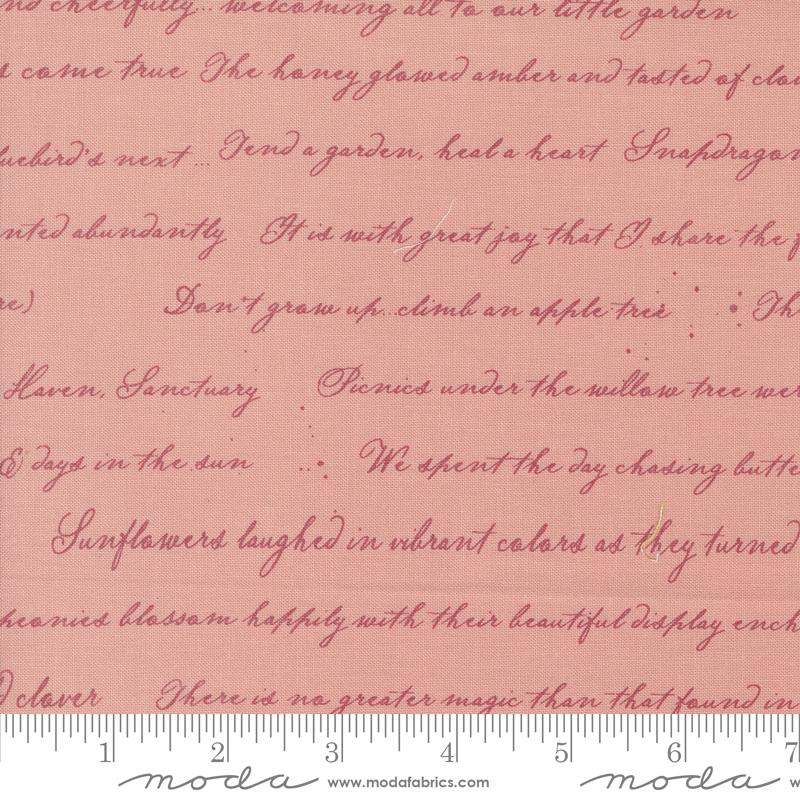 nd cheerfully... welcoming all to our little garden
s come true The honey glowed amber and tasted of clov
uebird's next ... Tend a garden, heal a heart Snapdragon
nted abundantly It is with great joy that I share the f
re) Don't grow up...climb an apple tree Th
Haven, Sanctuary Picnics under the willow tree wer
& days in the sun We spent the day chasing butte
Sunflowers laughed in vibrant colors as they turned
peonies blossom happily with their beautiful display ench
d clover There is no greater magic than that found in
1 2 3 4 5 6 7
moda www.modafabrics.com moda w